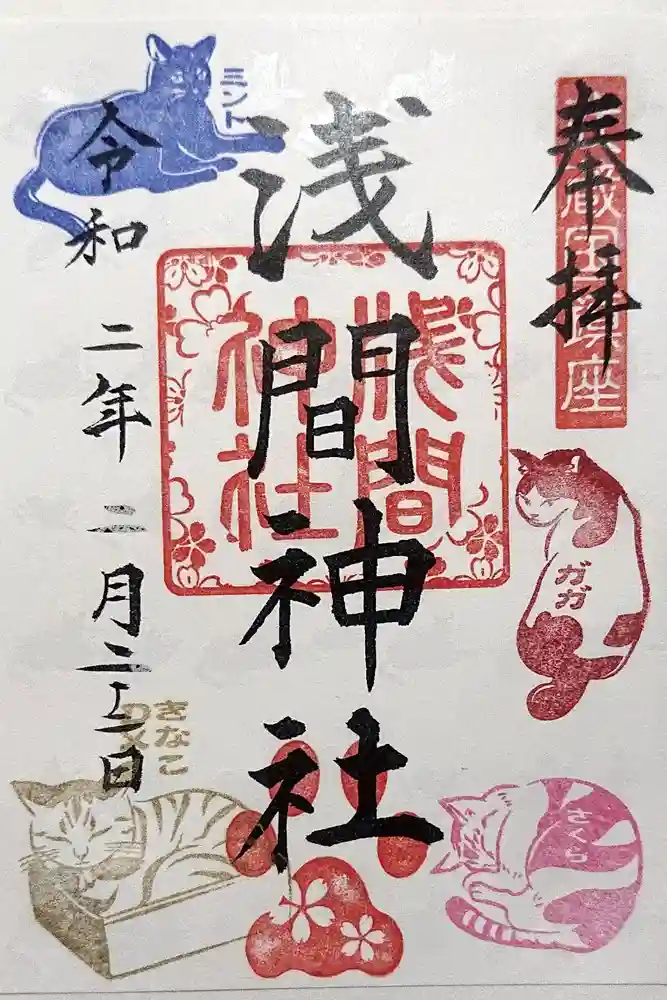 奉拝
浅間神社
浅間
神社
令和二年二月二十二日
ミント
ガガ
きなこ
さくら